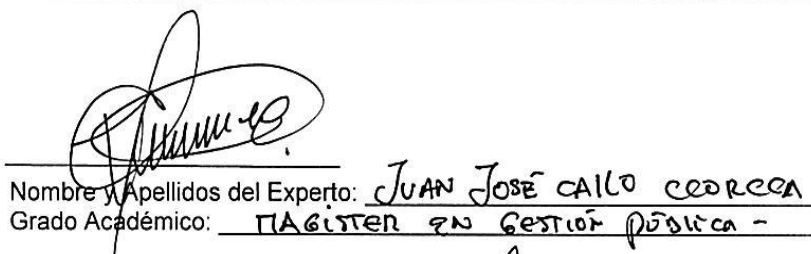 Nombre y Apellidos del Experto: JUAN JOSÉ CALLO CCORCCA
Grado Académico: MAGISTER EN GESTIÓN PÚBLICA -